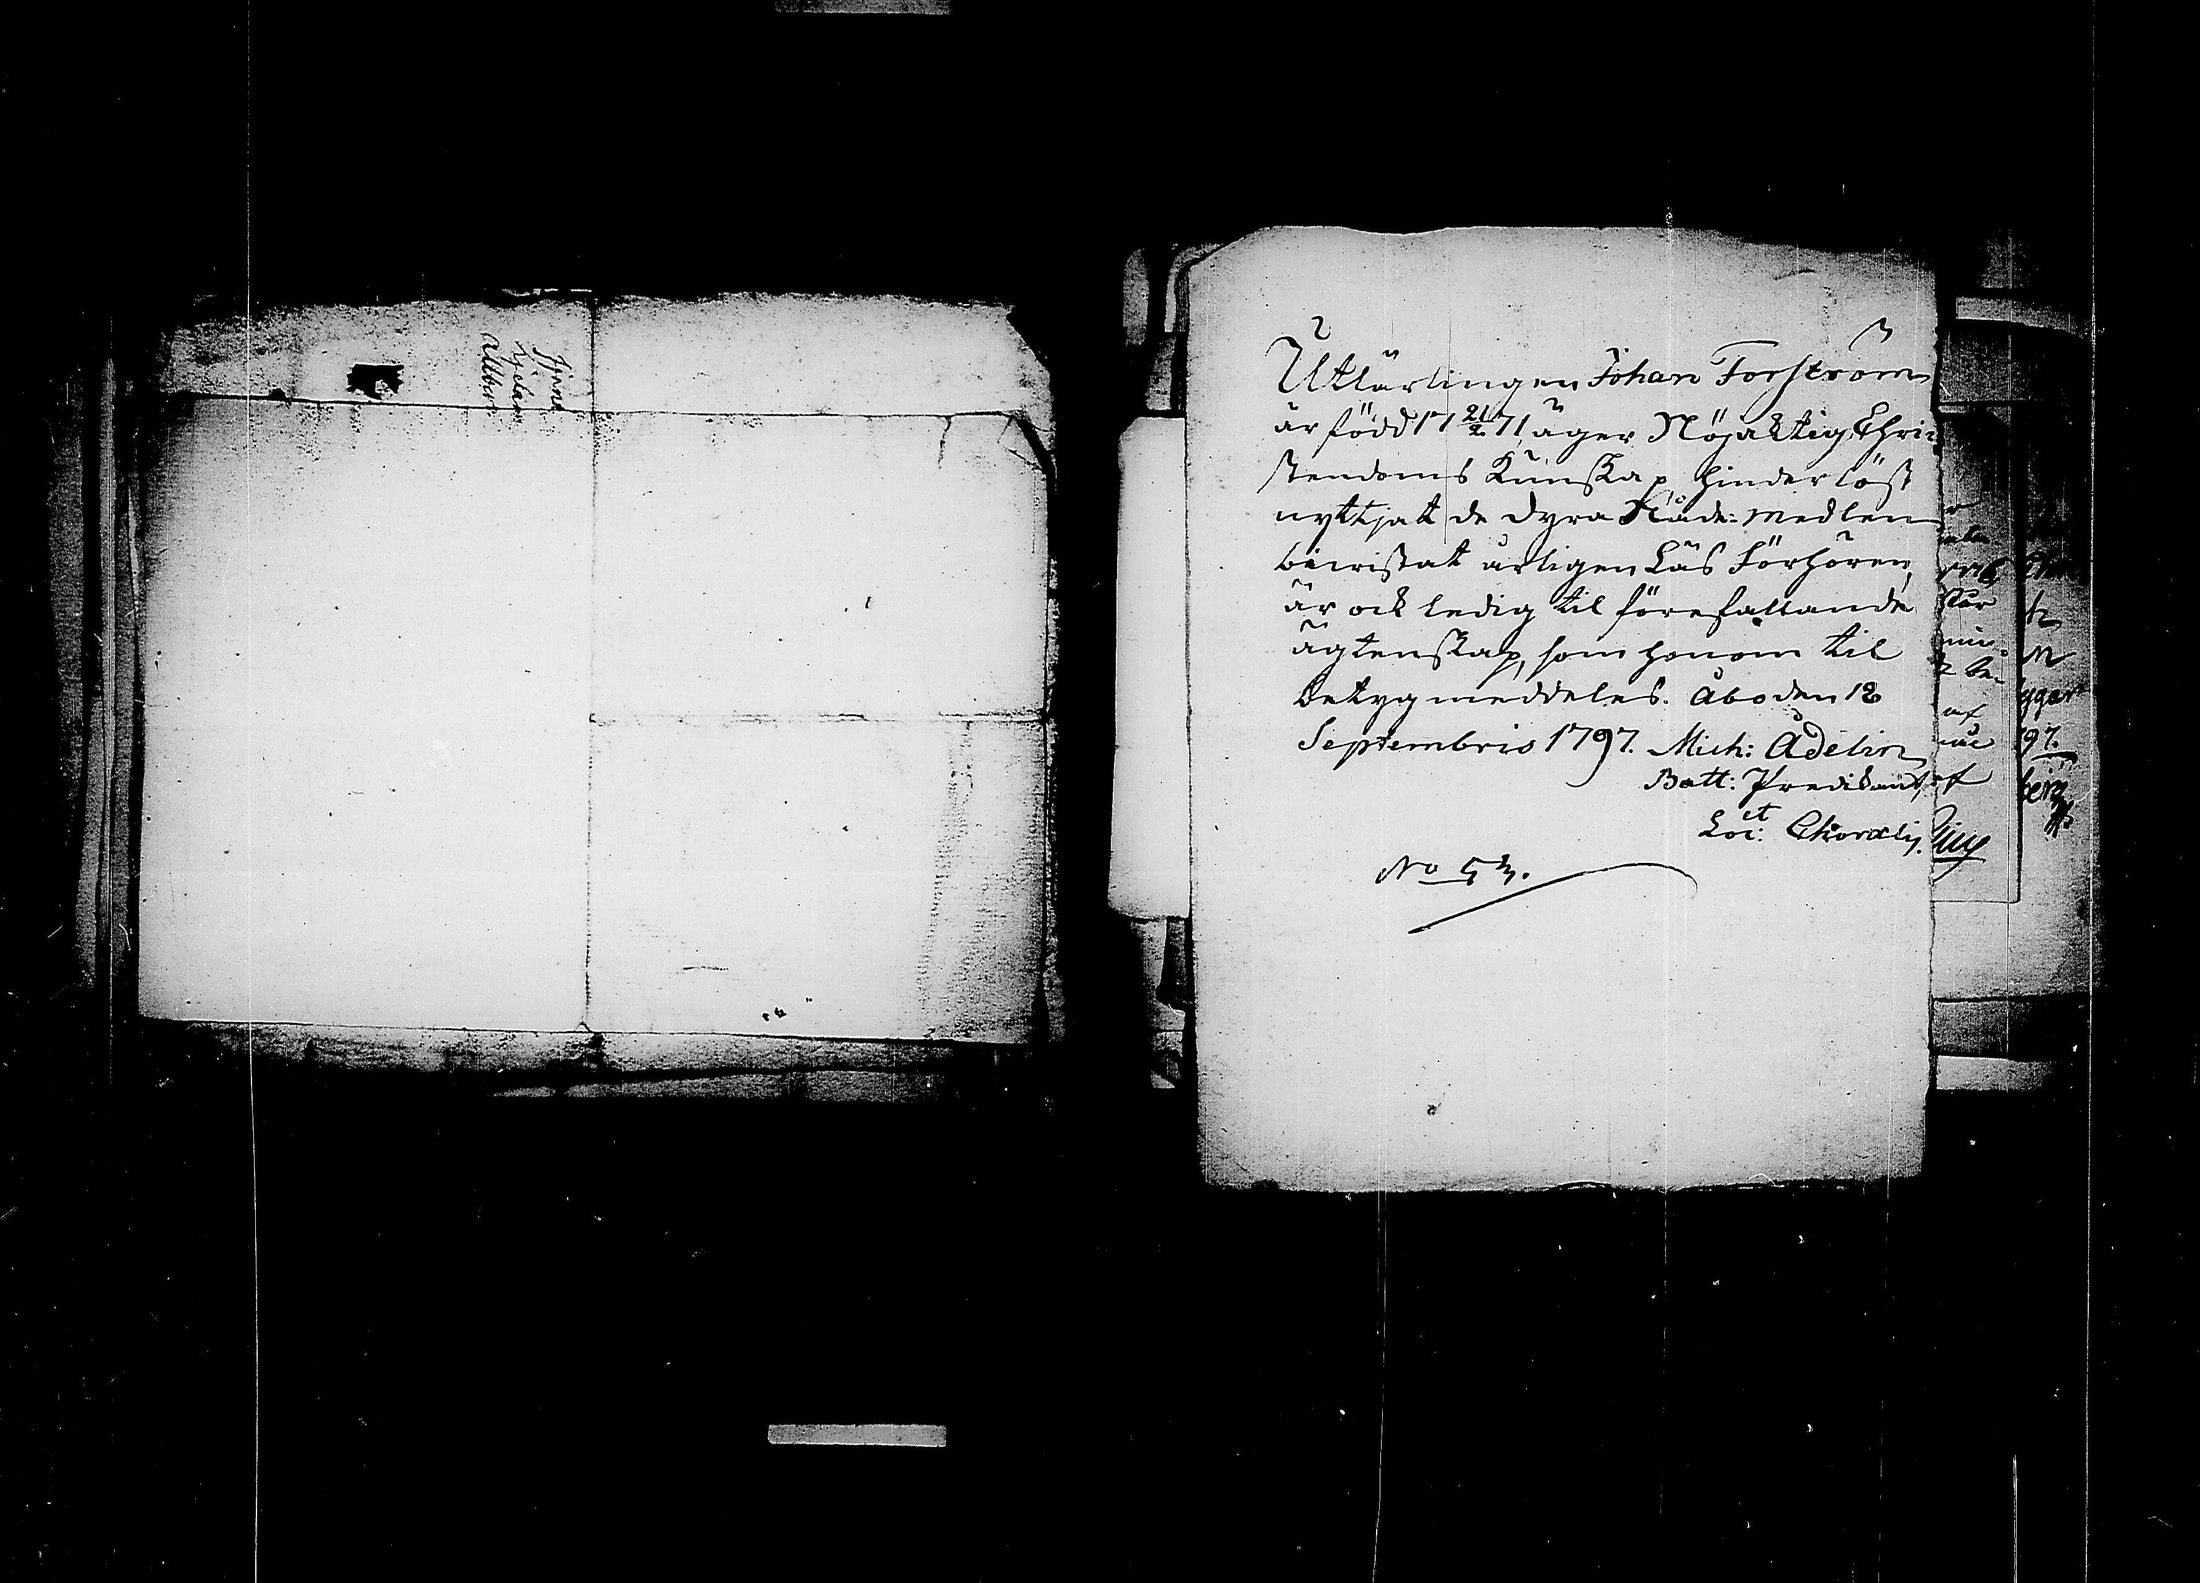 Utlärlingen Johan Forström
är född 17 21/2 71, äger Nöjaktig Chri-
stendoms Kunskap, hinderlöst
nyttjat de dyra Nåde-medlen
bewistat årligen Läs Förhören,
är ock ledig til förefallande
ägtenskap, som honom til
betyg meddeles. Åbo den 18
Septembris 1797. Mich: Adelin
Batt: Predikant
et
Loc:
No 53.
97.